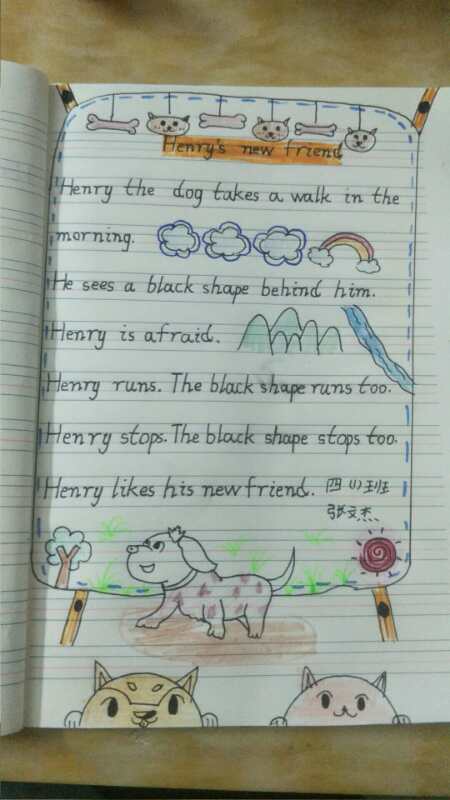 Henry's new friend
Henry the dog takes a walk in the
morning.
He sees a black shape behind him.
Henry is afraid.
Henry runs. The black shape runs too.
Henry stops. The black shape stops too.
Henry likes his new friend. 四(1)班
张文杰